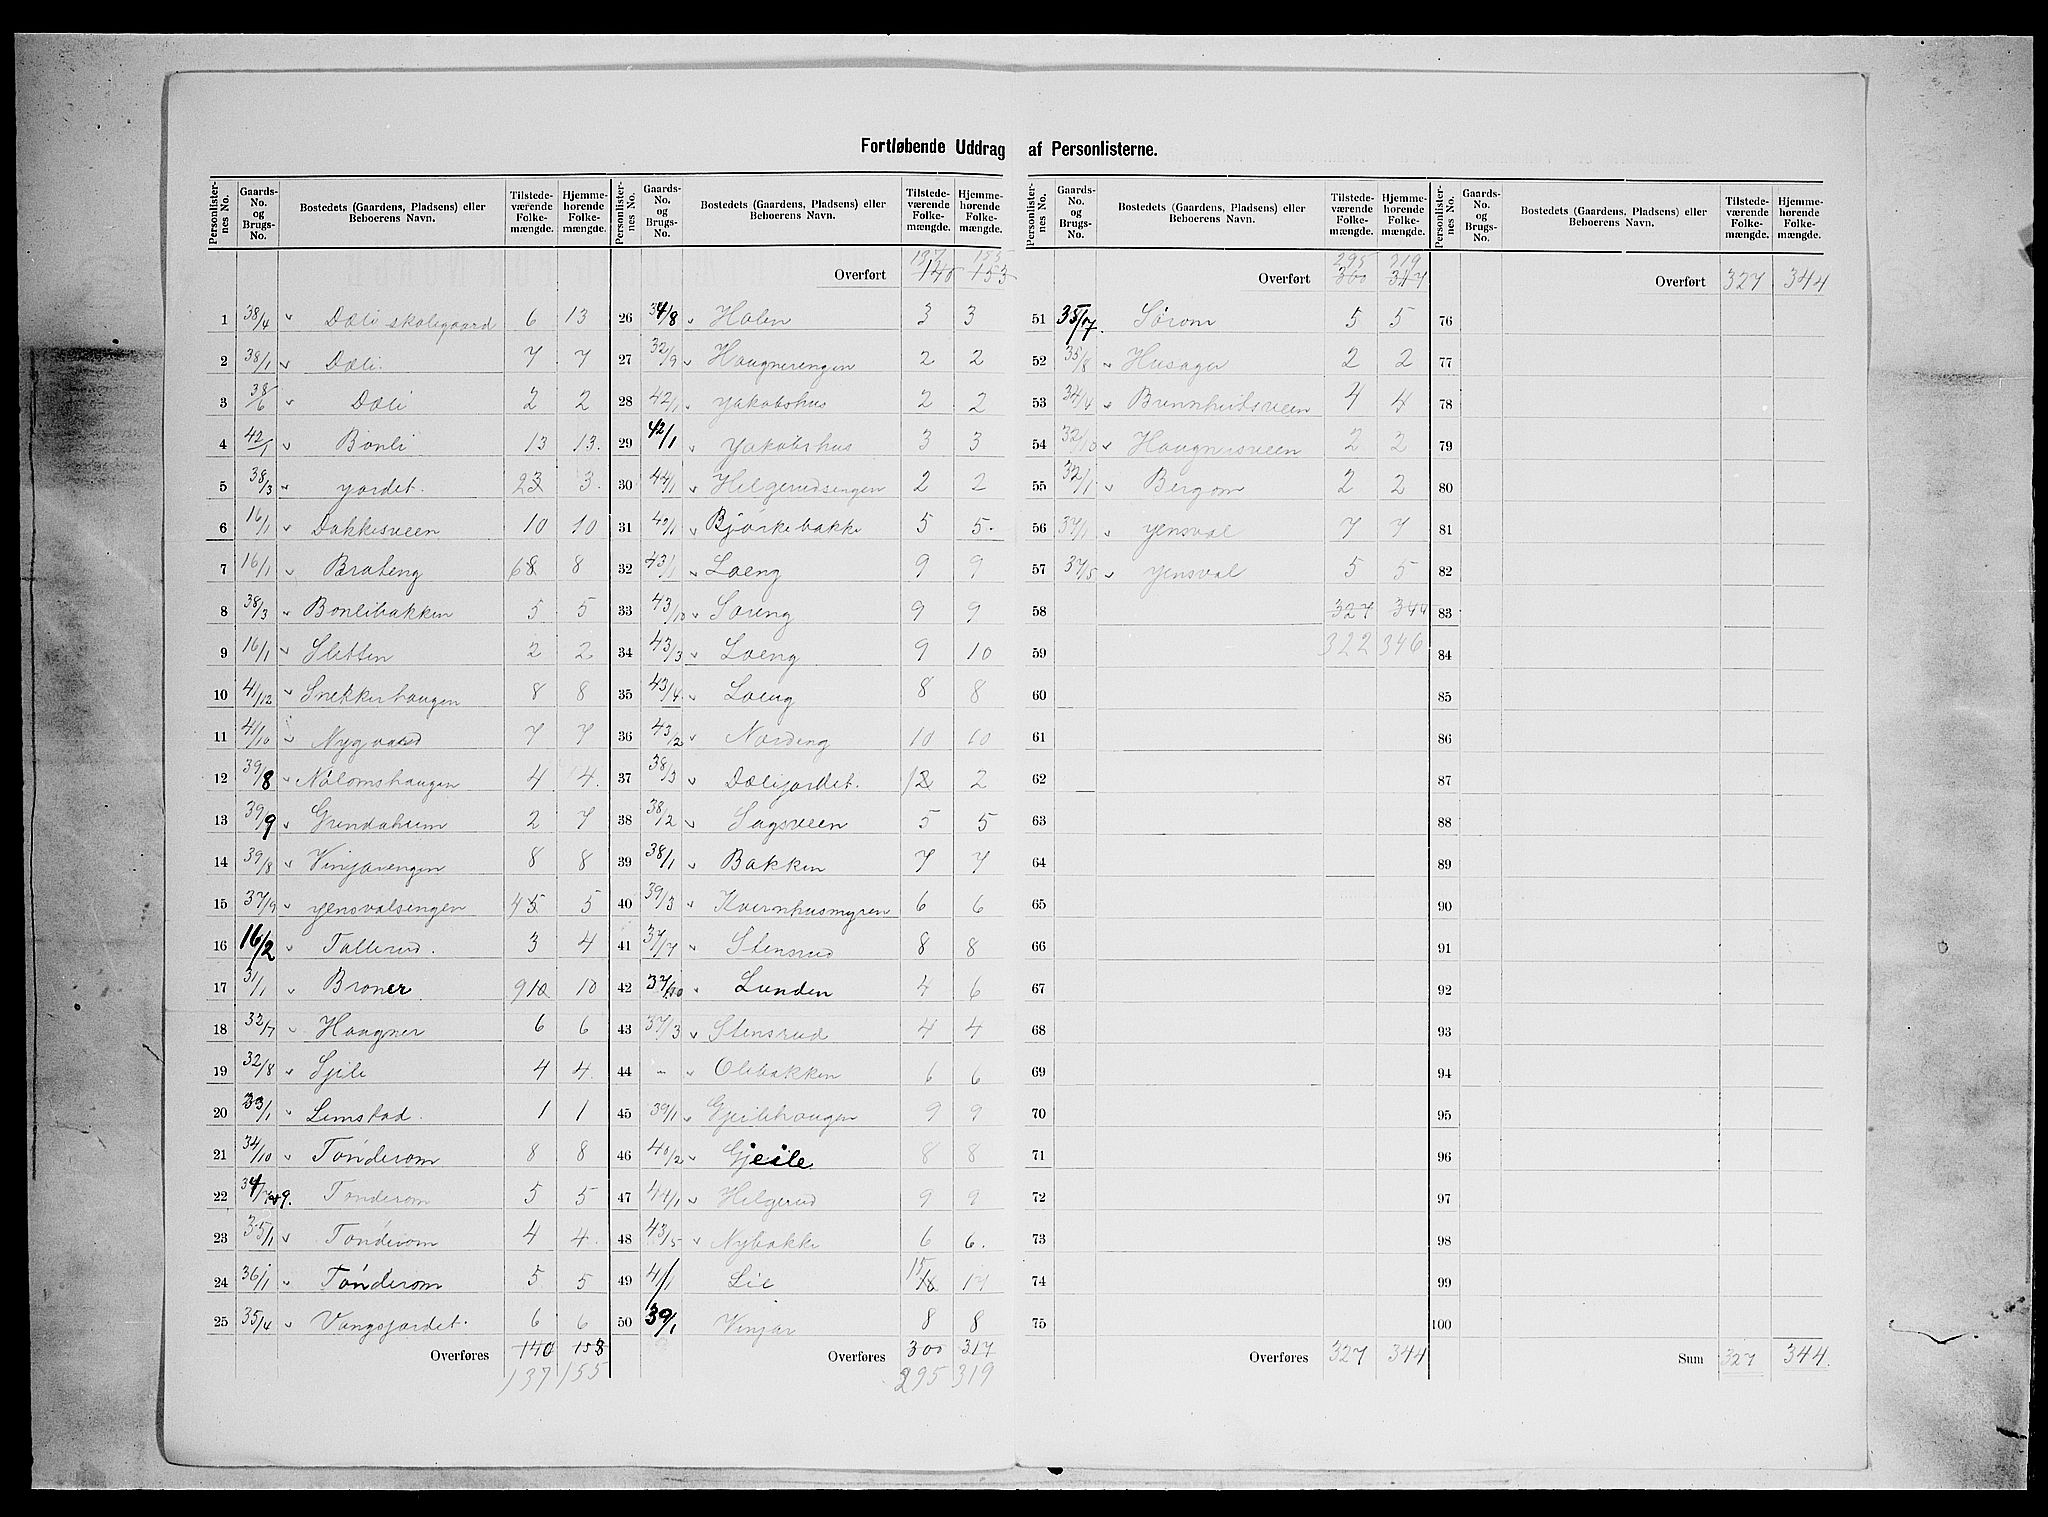 Fortløbende Uddrag af Personlisterne.
Personlister-nes No. | Gaards-No. og Brugs-No. | Bostedets (Gaardens, Pladsens) eller Beboerens Navn. | Tilstede-værende Folke-mængde. | Hjemme-hørende Folke-mængde.
1 38/4 Dæli skolegaard 6 13
2 38/1 Dæli 7 7
3 38/6 Dæli 2 2
4 42/1 Bonli 13 13.
5 38/3 Jordet. 23 3.
6 16/1 Dakkesveen 10 10
7 16/1 Brateng 68 8
8 38/3 Bonlibakken 5 5
9 16/1 Sletten 2 2
10 41/12 Snekkerhaugen 8 8
11 41/10 Nygaard 7 7
12 39/8 Nølomshaugen 4 4.
13 39/9 Grindaheim 2 7
14 39/8 Vinjarengen 8 8
15 37/9 Jensvalsengen 45 5
16 16/2 Tallerud. 3 4
17 31/1 Broner 910 10
18 32/7 Haagner 6 6
19 32/8 Gjile 4 4.
20 33/1 Lemstad. 1 1
21 34/10 Tønderom 8 8
22 34/7+9. Tønderom 5 5
23 35/1 Tønderom 4 4.
24 36/1 Tønderom 5 5
25 35/4 Vangsjordet. 6 6
Overføres 140 158
137 155
Personlister-nes No. | Gaards-No. og Brugs-No. | Bostedets (Gaardens, Pladsens) eller Beboerens Navn. | Tilstede-værende Folke-mængde. | Hjemme-hørende Folke-mængde.
137 155
Overført 140 153
26 34/8 Holen 3 3
27 32/9 Haagnerengen 2 2
28 42/1 Jakobshus 2 2
29 42/1 Jakobshus 3 3
30 44/1 Helgerudsengen 2 2
31 42/1 Bjørkebakke 5 5.
32 43/1 Loeng 9 9
33 43/10 Søreng 9 9
34 43/3 Loeng 9 10
35 43/4. Loeng 8 8
36 43/2 Nordeng 10 10
37 38/3 Dælijordet. 12 2
38 38/2 Sagsveen 5 5
39 38/1 Bakken 7 7
40 39/3 Kvernhusmyren 6 6
41 37/7 Stensrud 8 8
42 37/10 Lunden 4 6
43 37/3 Stensrud 4 4
44 - Olebakken 6 6
45 39/1 Gjeilehaugen 9 9
46 40/2 Gjeile 8 8
47 44/1 Helgerud 9 9
48 43/5 Nybakke 6 6.
49 41/1 Lie 15 18 17
50 39/1 Vinjar 8 8
Overføres 300 317
295 319
Personlister-nes No. | Gaards-No. og Brugs-No. | Bostedets (Gaardens, Pladsens) eller Beboerens Navn. | Tilstede-værende Folke-mængde. | Hjemme-hørende Folke-mængde.
295 319
Overført 300 317
51 35/7. Sørom 5 5
52 35/8 Husager 2 2
53 34/4 Brennhudsveen 4 4
54 32/10 Haagnersveen 2 2
55 32/1 Bergom 2 2
56 37/1 Jensval 7 7
57 37/5 Jensval 5 5
58 327 344
59 322 346
60
61
62
63
64
65
66
67
68
69
70
71
72
73
74
75
Overføres 327 344
Personlister-nes No. | Gaards-No. og Brugs-No. | Bostedets (Gaardens, Pladsens) eller Beboerens Navn. | Tilstede-værende Folke-mængde. | Hjemme-hørende Folke-mængde.
Overført 327 344
76
77
78
79
80
81
82
83
84
85
86
87
88
89
90
91
92
93
94
95
96
97
98
99
100
Sum 327 344.